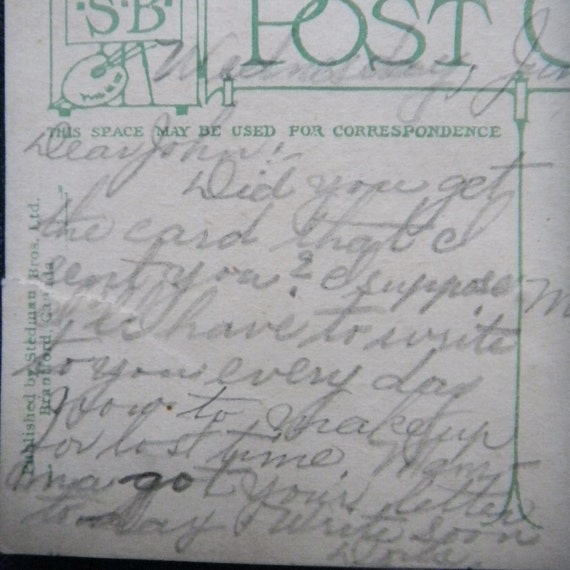 S·B·
POST C
Wednesday, Jan
THIS SPACE MAY BE USED FOR CORRESPONDENCE
Dear John:-
Did you get
the card that I
sent you? I suppose
I'll have to write
to you every day
Now to make up
for lost time. Mam-
ma got your letter
to-day Write soon
M
Published by Stedman Bros., Ltd.
Brantford Canada